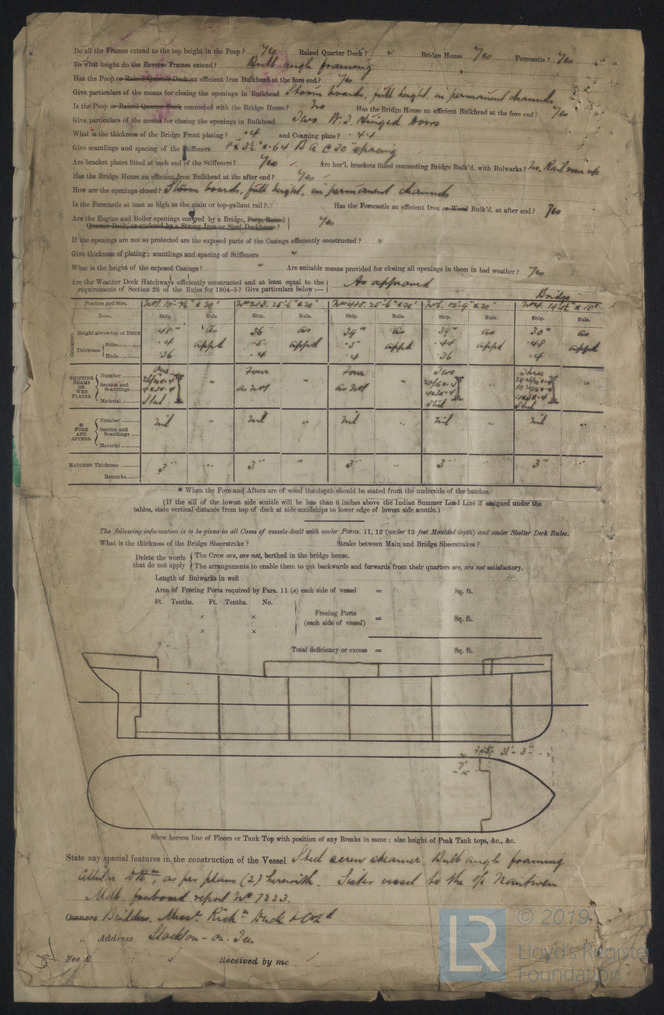 Do all the Frames extend to the top height in the Poop? Yes Raised Quarter Deck? " Bridge House Yes Forecastle? Yes
To what height do the Reverse Frames extend? Bulb angle framing
Has the Poop or Raised Quarter Deck an efficient Iron Bulkhead at the fore end? Yes
Give particulars of the means for closing the openings in Bulkhead Storm boards, full height, in permanent channels
Is the Poop or Raised Quarter Deck connected with the Bridge House? No Has the Bridge House an efficient Bulkhead at the fore end? Yes
Give particulars of the means for closing the openings in Bulkhead Two W.T. Hinged Doors
What is the thickness of the Bridge Front plating? .4 and Coaming plate? .44
Give scantlings and spacing of the Stiffeners B A @ 30" spacing
Are bracket plates fitted at each end of the Stiffeners? Yes Are hor'l. brackets fitted connecting Bridge Bulk'd. with Bulwarks? No,
Has the Bridge House an efficient Iron Bulkhead at the after end? Yes
How are the openings closed? Storm boards, full height, in permanent channels
Is the Forecastle at least as high as the main or top-gallant rail? Has the Forecastle an efficient Iron or Wood Bulk'd. at after end? Yes
Are the Engine and Boiler openings covered by a Bridge, Poop, Raised Quarter Deck, or enclosed by a Strong Iron or Steel Deckhouse? Yes
If the openings are not so protected are the exposed parts of the Casings efficiently constructed? "
Give thickness of plating; scantlings and spacing of Stiffeners "
What is the height of the exposed Casings? " Are suitable means provided for closing all openings in them in bad weather? Yes
Are the Weather Deck Hatchways efficiently constructed and at least equal to the requirements of Section 28 of the Rules for 1904-5? Give particulars below:— As approved
Bridge
Position and Size.
Item. Ship. Rule. Ship. Rule. Ship. Rule. Ship. Rule. Ship. Rule.
COAMING Height above top of DECK 36 as 39" as 39" as 30" as
Thickness Sides .4 appd .5 appd .5 appd .44 appd .48 appd
Ends .36 .4 .4 .36 .4
SHIFTING BEAMS OR WEB PLATES. Number Four Four Two Three
Section and Scantlings as No 1 " as No 1 "
Material Steel Steel Steel
* FORE AND AFTERS. Number Nil " Nil " Nil " Nil " Nil "
Section and Scantlings
Material
HATCHES Thickness 3" " 3" " 3" " 3" " 3" "
Remarks
* When the Fore-and-Afters are of wood the depth should be stated from the underside of the hatches.
(If the sill of the lowest side scuttle will be less than 6 inches above the Indian Summer Load Line if assigned under the
tables, state vertical distance from top of deck at side amidships to lower edge of lowest side scuttle.)
The following information is to be given in all Cases of vessels dealt with under Paras. 11, 12 (under 15 feet Moulded depth) and under Shelter Deck Rules.
What is the thickness of the Bridge Sheerstrake? Strake between Main and Bridge Sheerstrakes?
Delete the words that do not apply
The Crew are, are not, berthed in the bridge house.
The arrangements to enable them to get backwards and forwards from their quarters are, are not satisfactory.
Length of Bulwarks in well
Area of Freeing Ports required by Para. 11 (e) each side of vessel = Sq. ft.
Ft. Tenths. Ft. Tenths. No.
× ×
Freeing Ports (each side of vessel) = Sq. ft.
× ×
Total deficiency or excess = Sq. ft.
7'
Show hereon line of Floors or Tank Top with position of any Breaks in same; also height of Peak Tank tops, &c., &c.
State any special features in the construction of the Vessel. Steel screw steamer. Bulb angle framing
as per plans (2) herewith. Sister vessel to the s/s
Mdb. freeboard report No 7233.
Owners Builders, Messrs. Richd. Duck & Co Ld
Address Stockton-on-Tees
Fee £ Received by me
LR
© 2019
Lloyd's Register
Foundation